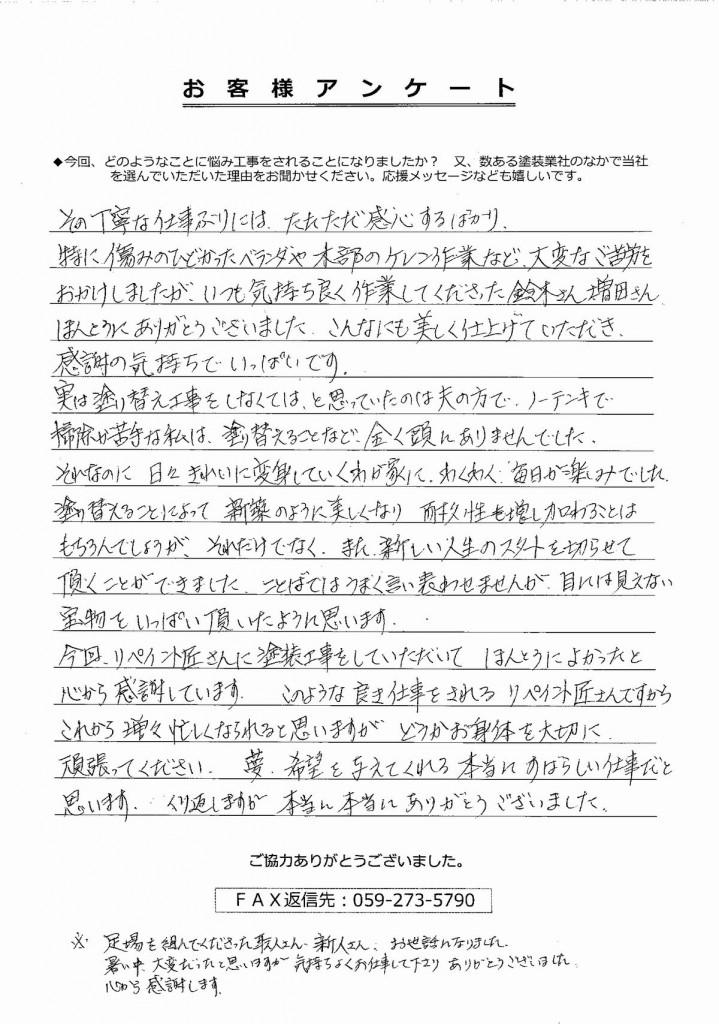 お客様アンケート
◆今回、どのようなことに悩み工事をされることになりましたか？　又、数ある塗装業社のなかで当社
を選んでいただいた理由をお聞かせください。応援メッセージなども嬉しいです。
その丁寧な仕事ぶりには、ただただ感心するばかり、
特に傷みのひどかったベランダや木部のケレン作業など、大変なご苦労を
おかけしましたが、いつも気持ち良く作業してくださった鈴木さん、増田さん
ほんとうにありがとうございました。こんなにも美しく仕上げていただき、
感謝の気持ちでいっぱいです。
実は塗り替え工事をしなくては、と思っていたのは夫の方で、ノーテンキで
掃除が苦手な私は、塗り替えることなど、全く頭にありませんでした。
それなのに 日々きれいに変身していくわが家に、わくわく、毎日が楽しみでした。
塗り替えることによって 新築のように美しくなり 耐久性も増し加わることは
もちろんでしょうが、それだけでなく、また新しい人生のスタートを切らせて
頂くことができました。ことばではうまく言い表わせませんが、目には見えない
宝物をいっぱい頂いたように思います。
今回、リペイント匠さんに塗装工事をしていただいて ほんとうによかったと
心から感謝しています。 このような良き仕事をされる リペイント匠さんですから
これから増々忙しくなられると思いますが どうかお身体を大切に、
頑張ってください。 夢、希望を与えてくれる 本当にすばらしい仕事だと
思います。 くり返しますが 本当に本当にありがとうございました。
ご協力ありがとうございました。
ＦＡＸ返信先：059-273-5790
※ 足場を組んでくださった 新人さん、お世話になりました。
暑い中、大変だったと思いますが 気持ちよくお仕事して下さり ありがとうございました。
心から感謝します。